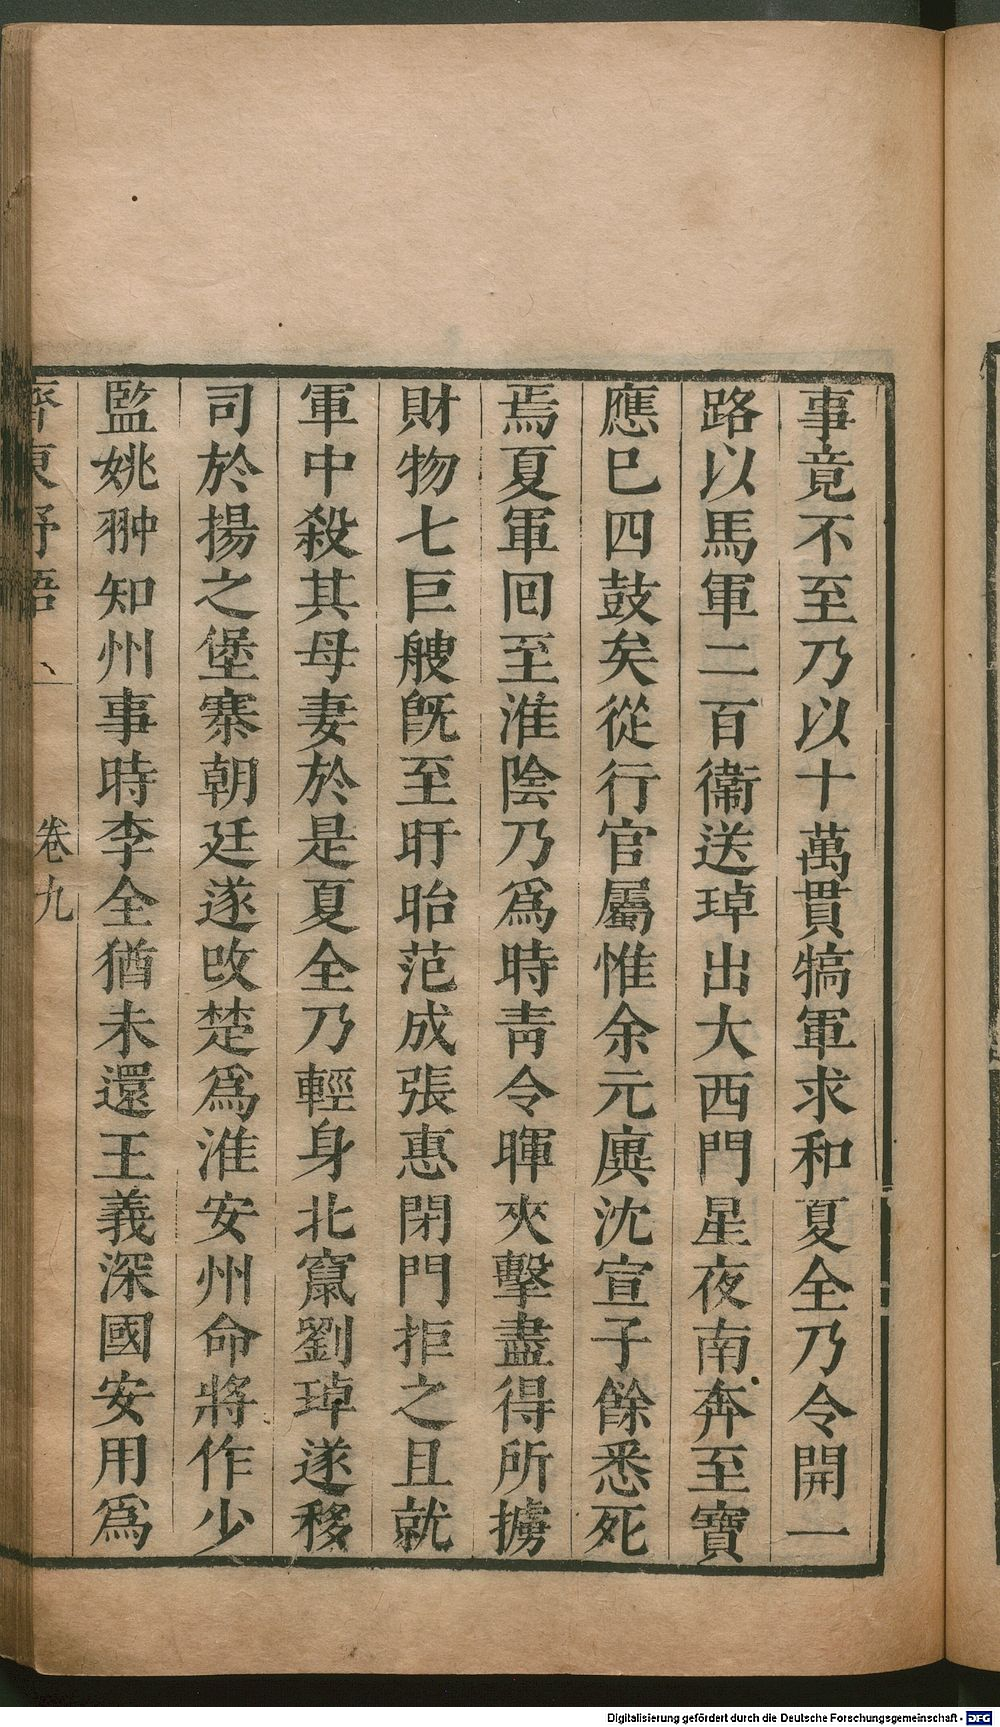 事竟不至乃以十萬貫犒軍求和夏全乃令開一
路以馬軍二百衞送琸出大西門星夜南奔至寶
應巳四鼓矣從行官屬惟余元廙沈宣子餘悉死
焉夏軍回至淮陰乃爲時靑令暉夾擊盡得所擄
財物七巨艘旣至盱眙范成張惠閉門拒之且就
軍中殺其母妻於是夏全乃輕身北竄劉琸遂移
司於揚之堡寨朝廷遂改楚爲淮安州命將作少
監姚翀知州事時李全猶未還王義深國安用爲
齊東野語
卷九
Digitalisierung gefördert durch die Deutsche Forschungsgemeinschaft - DFG